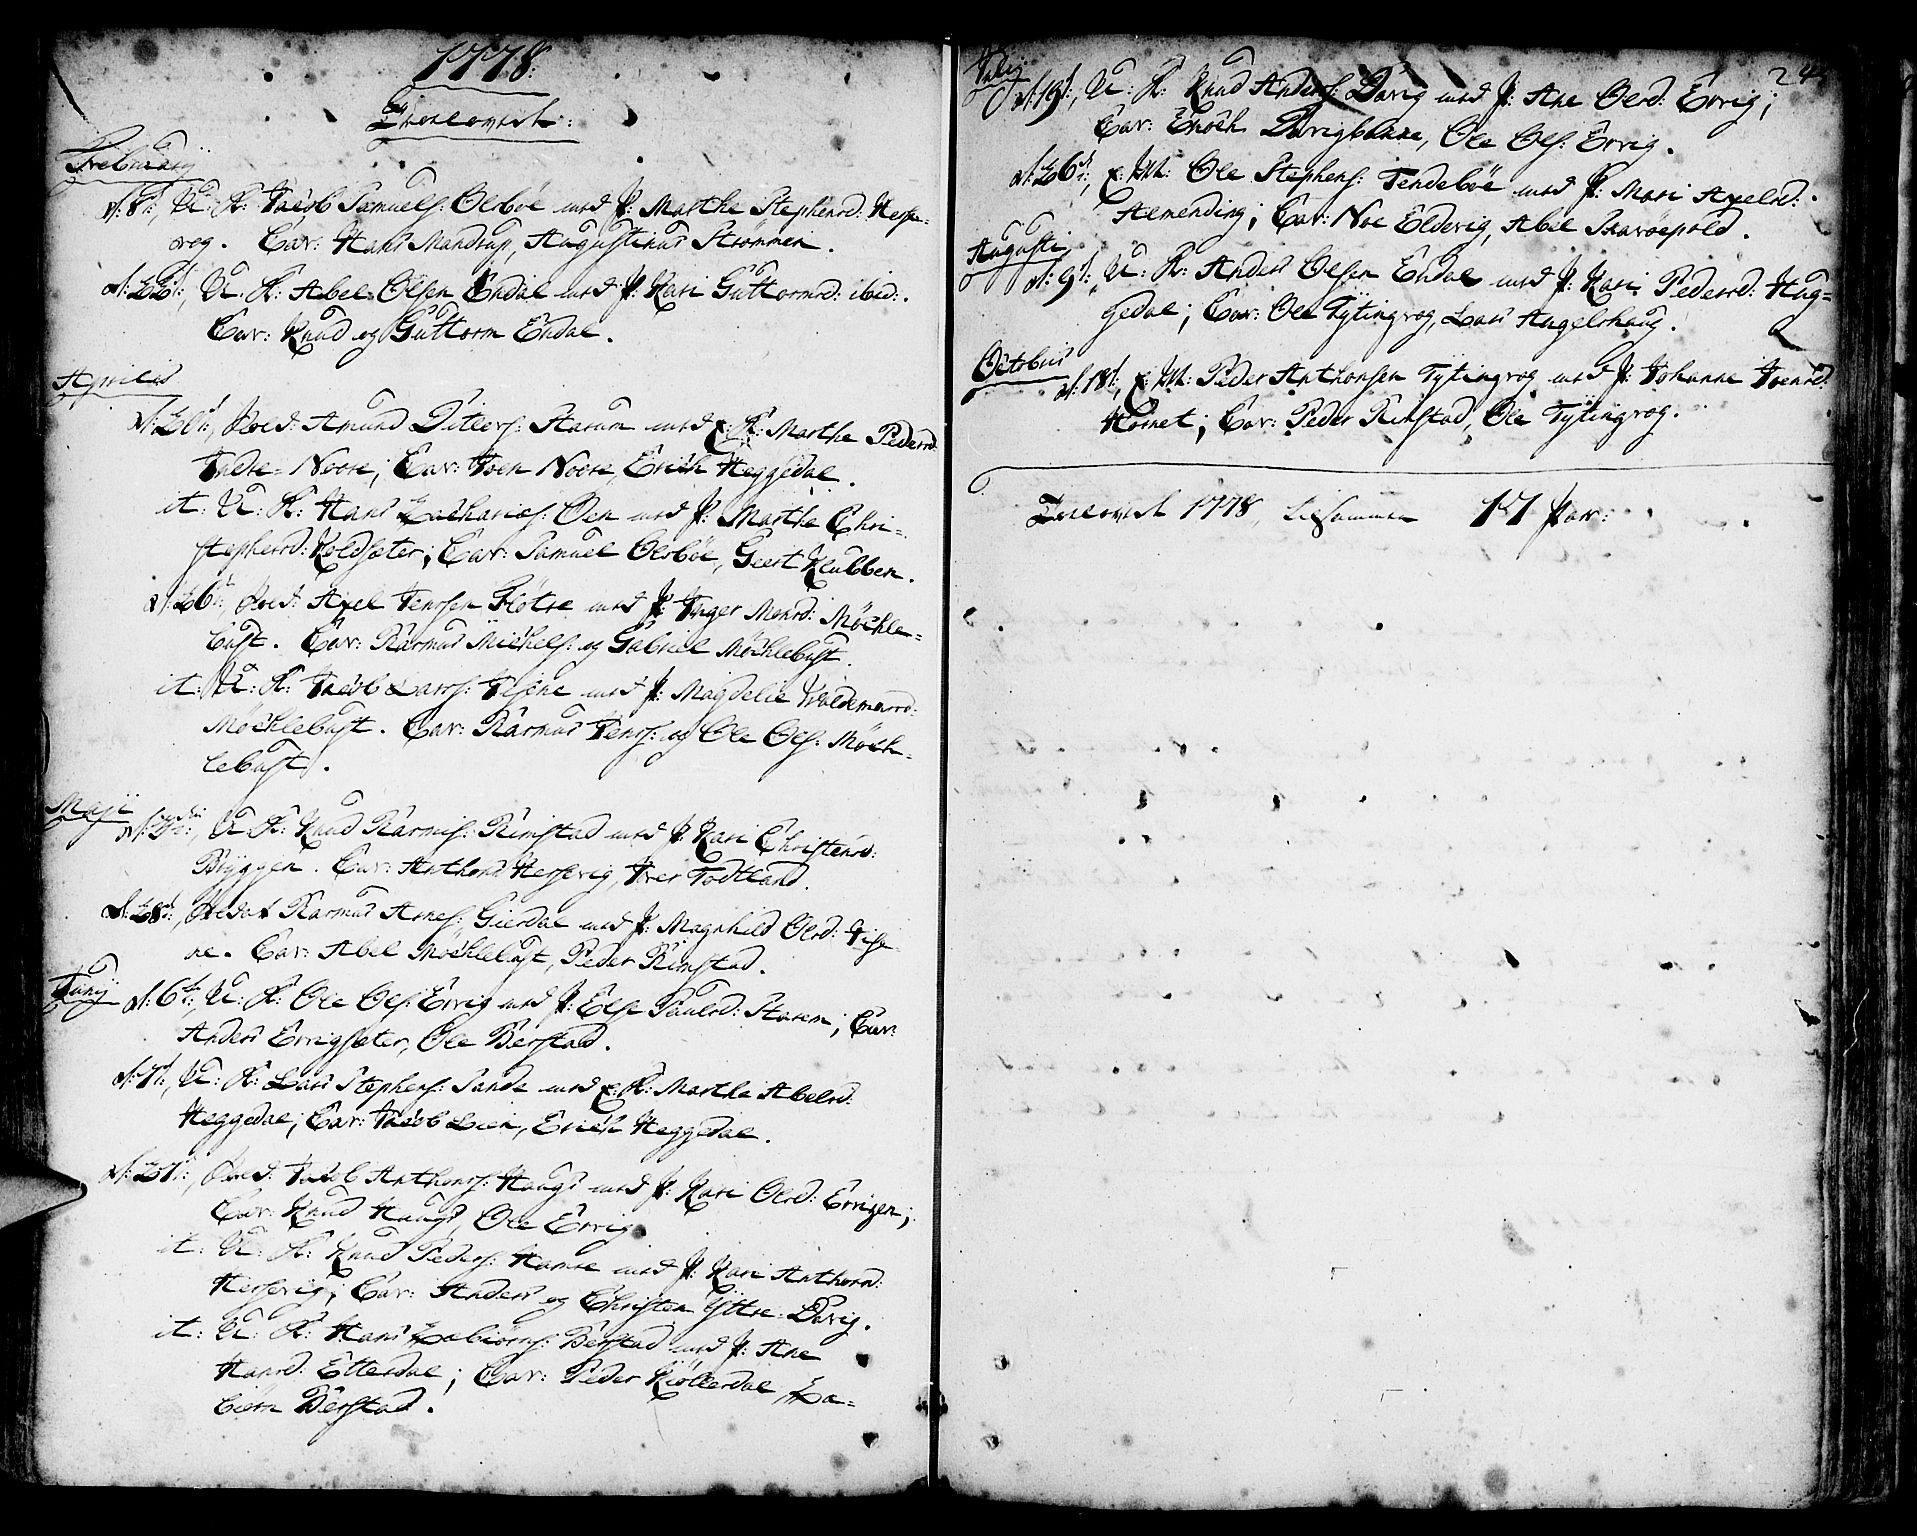 1778.
Ehrelovist:
Februarij
d: 8t:, U: K: Jacob Samuels: Olsböe med P: Marthe Stephensd: Hesse-
vog. Cav: Hans Mandrup, Augustinus Strömmen.
d: 22t:, U: K: Abel Olsen Endal med P: Kari Guttormsd: ibid:.
Cav: Knud og Guttorm Endal.
Apriles
d: 20t, Sold: Amund Ditlevs: Aarum med E: K: Marthe Pedersd:
Indre-Noore; Cav: Joen Noore, Erich Heggedal.
it: U: K: Hans Zacharies: Öen med P: Marthe Chri-
stephersd: Koldseter; Cav: Samuel Olsböe, Geert Klubben.
d: 26t:, Sold: Axel Jenssen Flötre med P: Inger Monsd: Möchle-
bust. Cav: Rasmus Michels: og Gabriel Möchlebust.
it: U: K: Jacob Larss: Tisene med P: Magdelie Woldemarsd:
Möchlebust. Cav: Rasmus Jenss: og Ole Ols: Möch-
lebust.
Maji
d: U: K: Knud Rasmus: Rimstad med P: Kari Christensd:
Bryggen. Cav: Anthons Hessevig, Iver Todtland.
d: 28t:, Soldat Rasmus Arnes: Gierdal med P: Magnhild Olsd: Tise-
ne. Cav: Abel Möchlebust, Peder Rimstad.
Junij
d: 6t:, U: K: Ole Ols: Ervig med P: Else Paulsd: Starem; Cav:
Anders Ervigseter, Ole Berstad.
d: 7t:, U: K: Lars Stephens: Sande med E: K: Marthe Abelsd:
Heggedal; Cav: Jacob Lien, Erich Heggedal.
d: 27t:, Sold: Jacob Anthons: Haugs med P: Kari Olsd: Ervigen;
Cav: Knud Haugs, Ole Ervig.
it: U: K: Knud Peders: Hamre med P: Kari Anthonsd:
Hessevig; Cav: Anders og Christen Yttre-Davig.
it: U: K: Hans Labiörns: Berstad med P: Ane
Hansd: Etterdal; Cav: Peder Kiöllerdal, La-
biörn Berstad.
Julij
d: 19t:, U: K: Knud Anders: Davig med P: Ane Olsd: Ervig;
Cav: Enoch Davigbakke, Ole Ols: Ervig.
d: 26t:, E: M: Ole Stephens: Tendeböe med P: Mari Axelsd:
Almending; Cav: Noe Eldevig, Abel Saaröepold.
Augusti
d: 9t:, U: K: Anders Olsen Endal med P: Kari Pedersd: Hug-
gedal; Cav: Ole Tytingvog, Lars Angelshaug.
Octobris
d: 18t, E: M: Peder Anthonsen Tytingvog med P: Johanne Joensd:
Hornet; Cav: Peder Rimstad, Ole Tytingvog.
1778, tilsammen 17 Par: